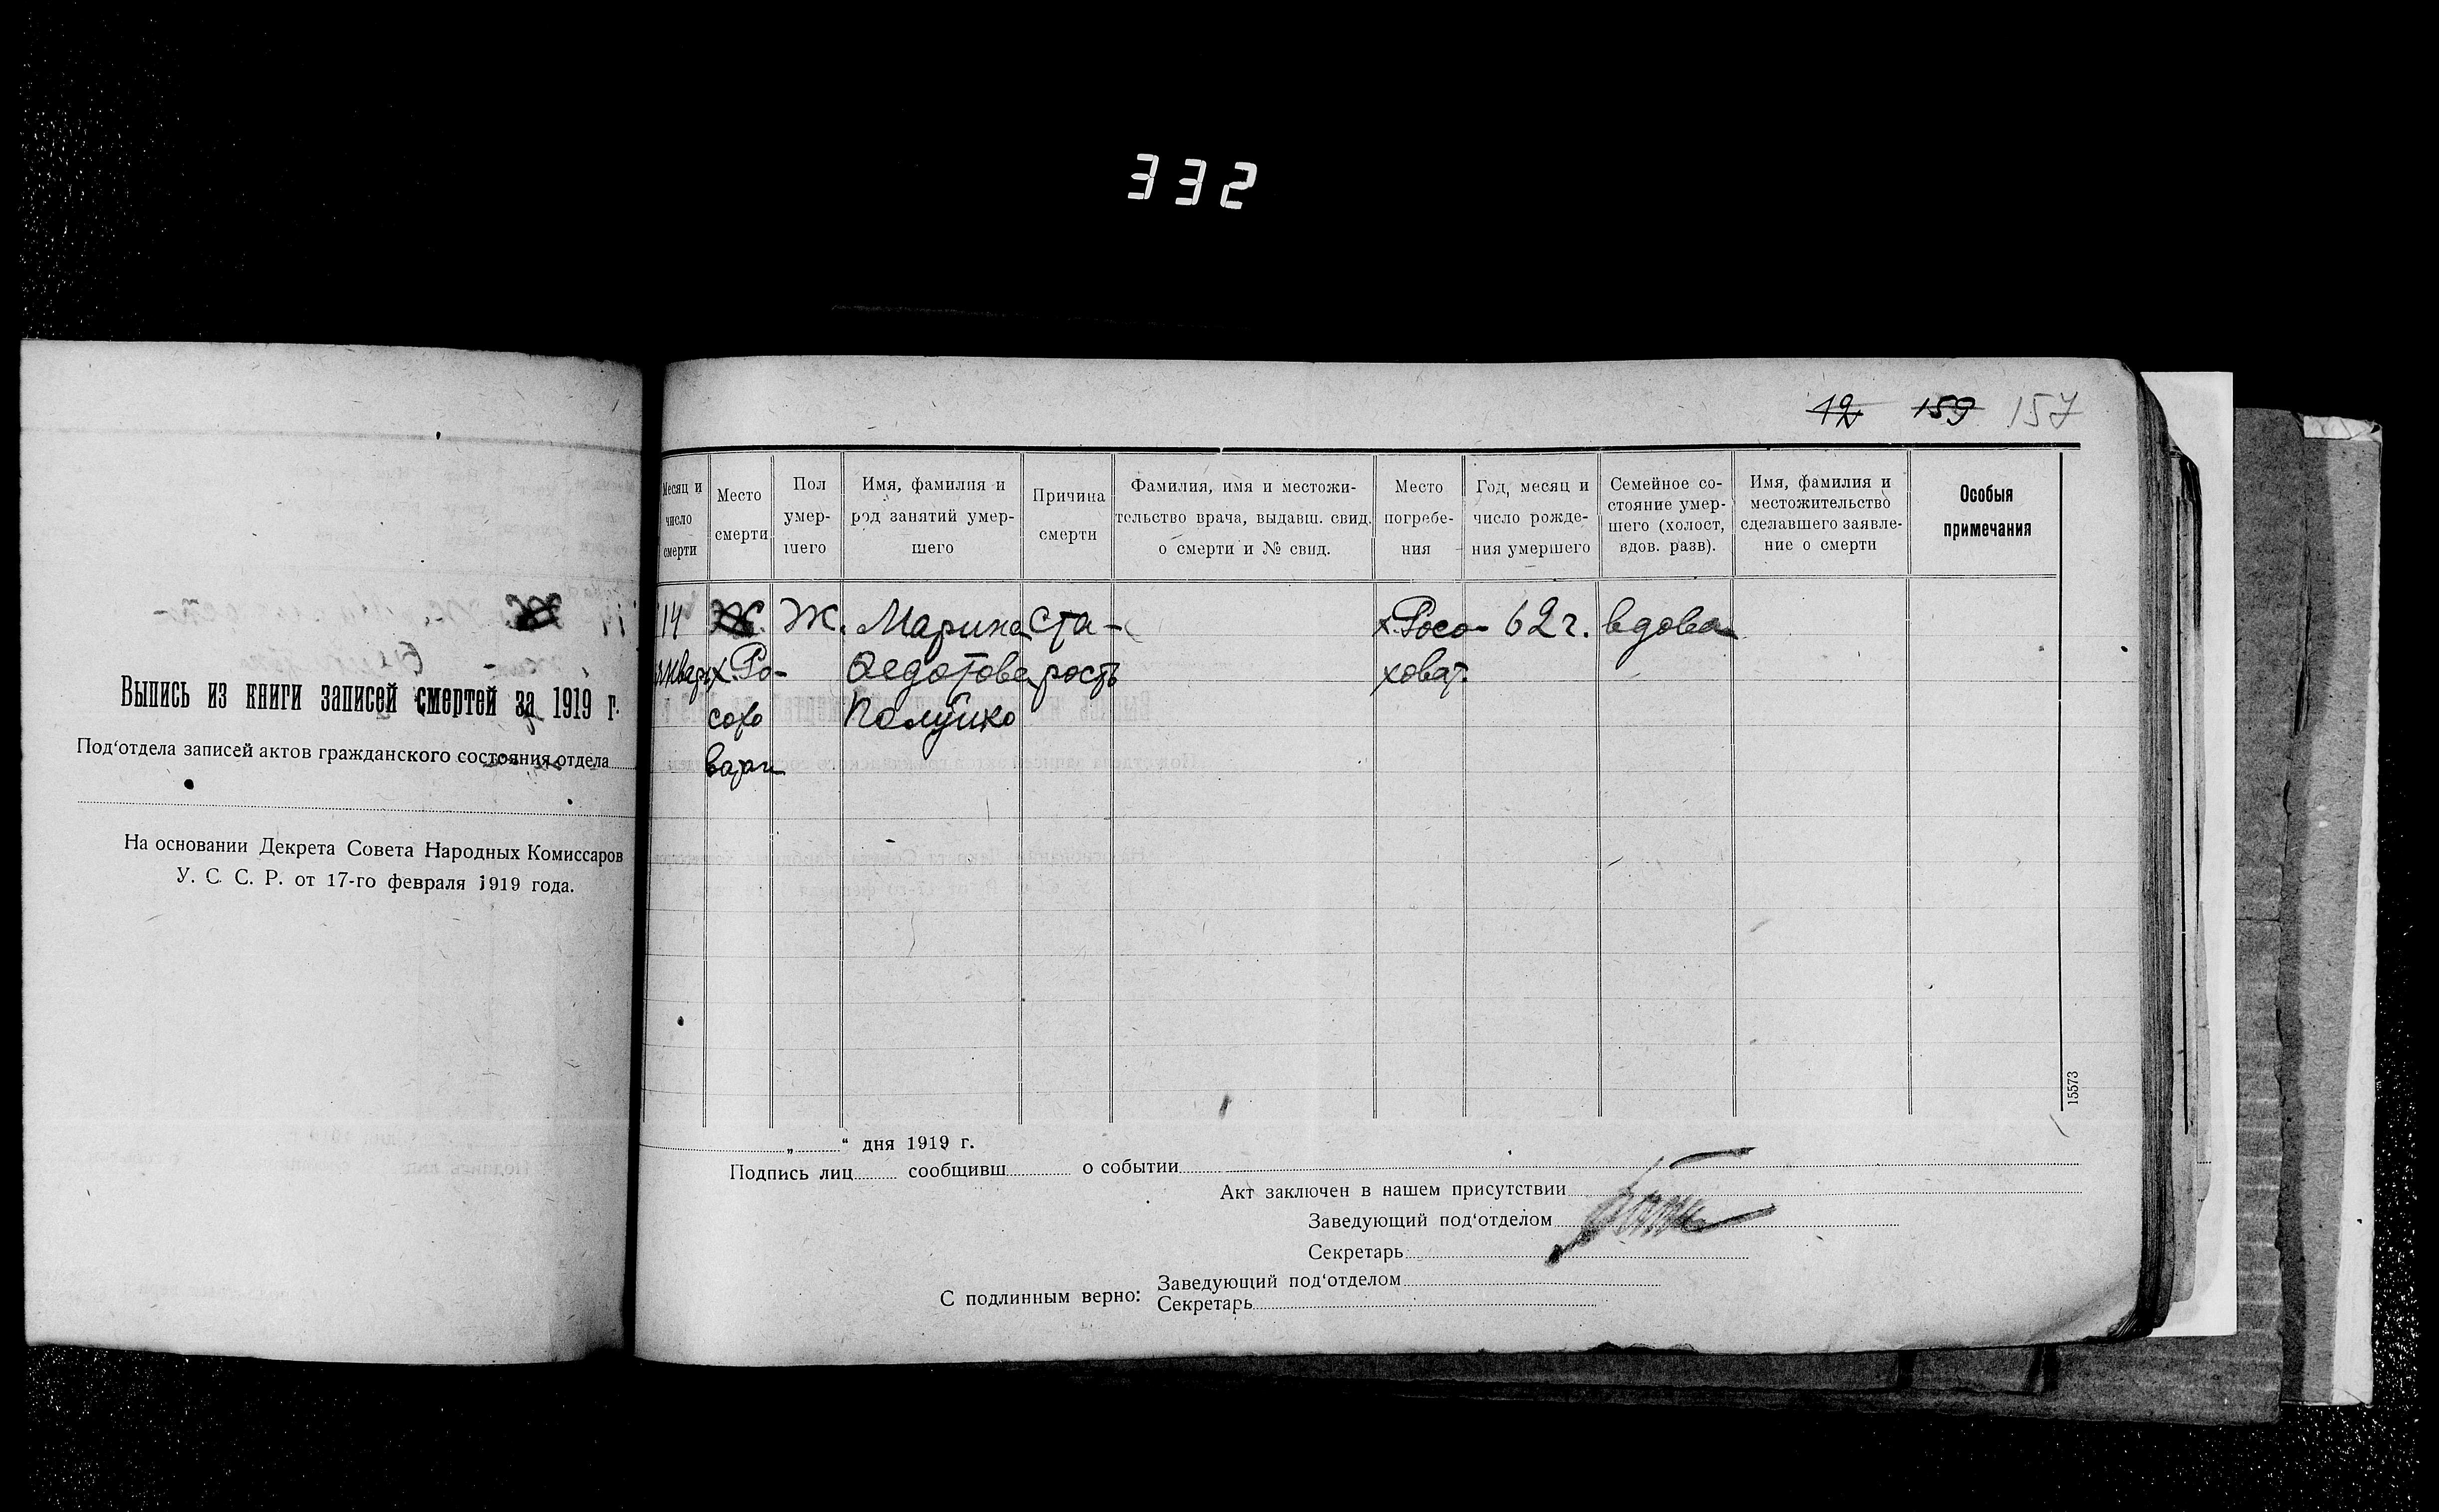 332
12 159 157
Выпись из книги записей смертей за 1919 г.
Под‘отдела записей актов гражданского состояния отдела
На основании Декрета Совета Народных Комиссаров
У. С. С. Р. от 17-го февраля 1919 года.
Месяц и число смерти
Место смерти
Пол умер-шего
Имя, фамилия и род занятий умер-шего
Причина смерти
Фамилия, имя и местожи-тельство врача, выдавш. свид. о смерти и № свид.
Место погребе-ния
Год, месяц и число рожде-ния умершего
Семейное со-стояние умер-шего (холост, вдов. разв).
Имя, фамилия и местожительство сделавшего заявле-ние о смерти
Особыя примечания
14 Ж. Ж. Марина Ста- х. Росо- 62 г. вдова
января х. Ро- Федотова рость ховат.
сохо
дня 1919 г.
Подпись лиц сообщивш о событии
Акт заключен в нашем присутствии
Заведующий под‘отделом
Секретарь
С подлинным верно: Заведующий под‘отделом
Секретарь
15573